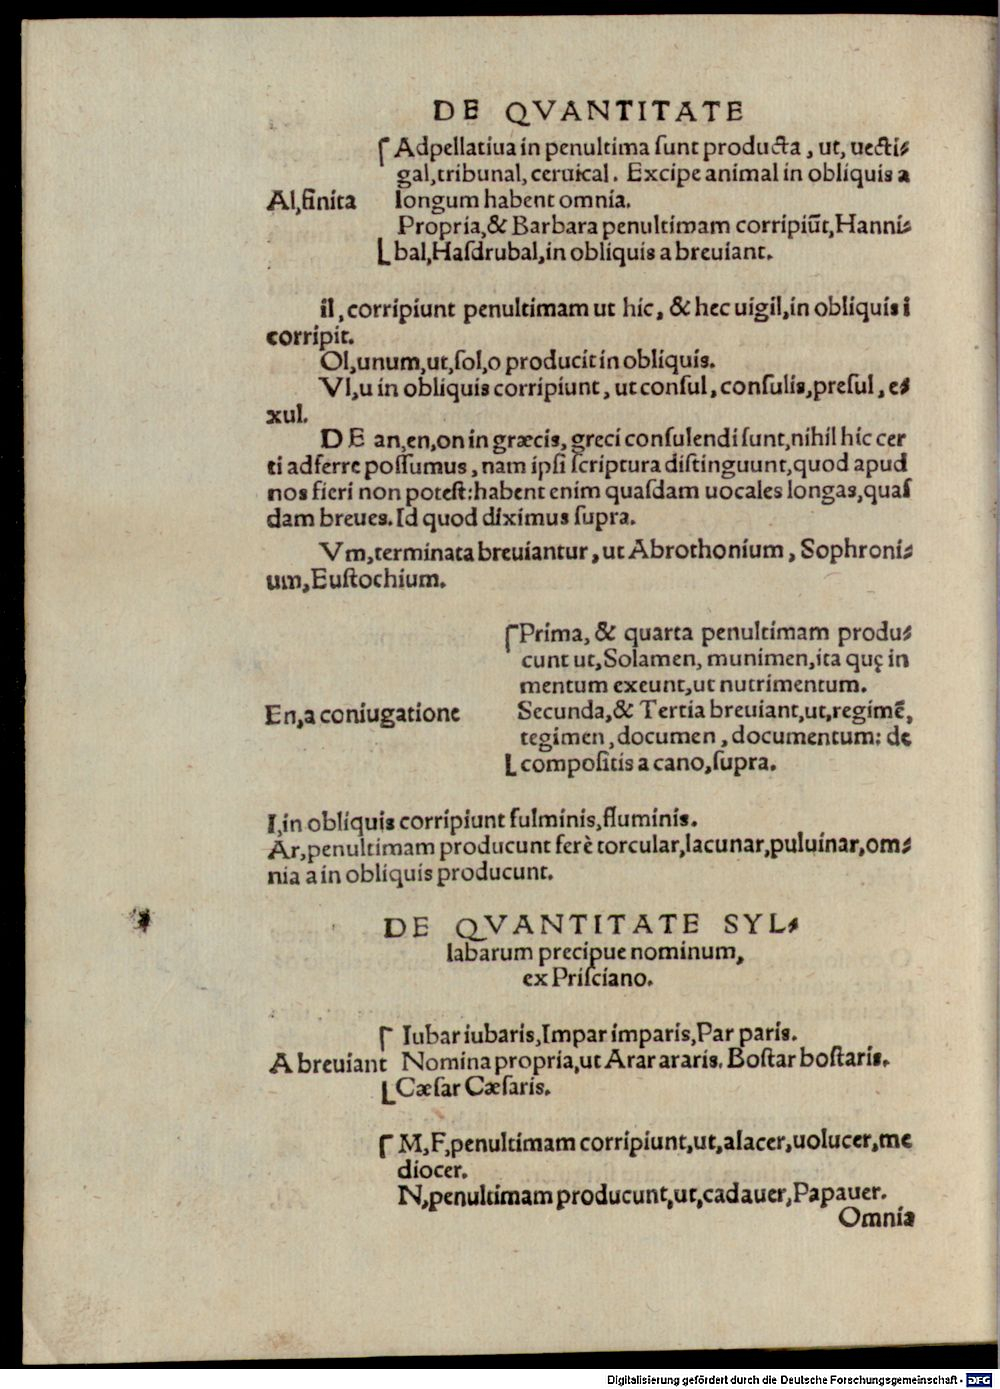 DE QVANTITATE
Adpellatiua in penultima ſunt producta, ut, uecti⸗
gal, tribunal, ceruical. Excipe animal in obliquis a
Al, finita longum habent omnia.
Propria, & Barbara penultimam corripiūt, Hanni⸗
bal, Haſdrubal, in obliquis a breuiant.
il, corripiunt penultimam ut hic, & hec uigil, in obliquis i
corripit.
Ol, unum, ut, ſol, o producit in obliquis.
Vl, u in obliquis corripiunt, ut conſul, conſulis, preſul, e⸗
xul.
DE an, en, on in græcis, greci conſulendi ſunt, nihil hic cer
ti adferre poſſumus, nam ipſi ſcriptura diſtinguunt, quod apud
nos fieri non poteſt: habent enim quaſdam uocales longas, quaſ
dam breues. Id quod diximus ſupra.
Vm, terminata breuiantur, ut Abrothonium, Sophroni⸗
um, Euſtochium.
Prima, & quarta penultimam produ⸗
cunt ut, Solamen, munimen, ita quę in
mentum exeunt, ut nutrimentum.
En, a coniugatione Secunda, & Tertia breuiant, ut, regimē,
tegimen, documen, documentum: de
compoſitis a cano, ſupra.
I, in obliquis corripiunt fulminis, fluminis.
Ar, penultimam producunt ferè torcular, lacunar, puluinar, om⸗
nia a in obliquis producunt.
DE QVANTITATE SYL⸗
labarum precipue nominum,
ex Priſciano.
Iubar iubaris, Impar imparis, Par paris.
A breuiant Nomina propria, ut Arar araris. Boſtar boſtaris.
Cæſar Cæſaris.
M, F, penultimam corripiunt, ut, alacer, uolucer, me
diocer.
N, penultimam producunt, ut, cadauer, Papauer.
Omnia
Digitalisierung gefördert durch die Deutsche Forschungsgemeinschaft - DFG